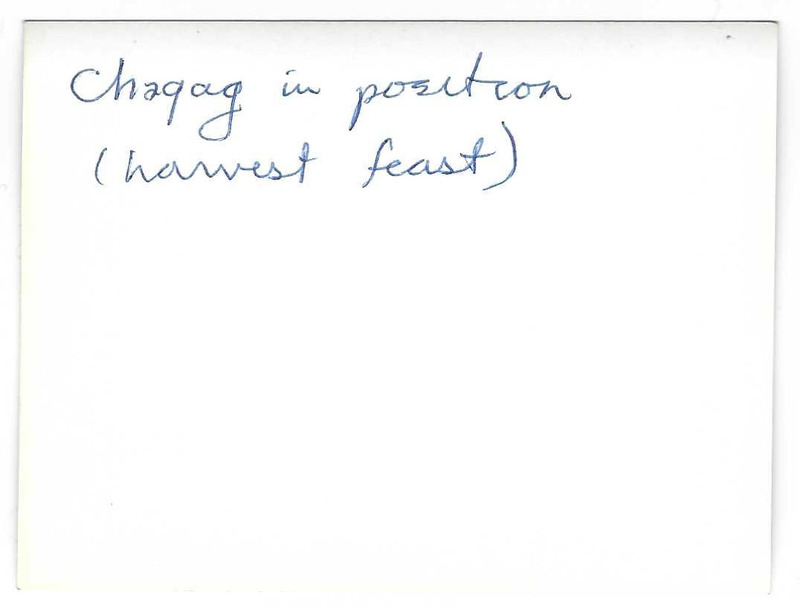 Chaqag in position
(harvest feast)